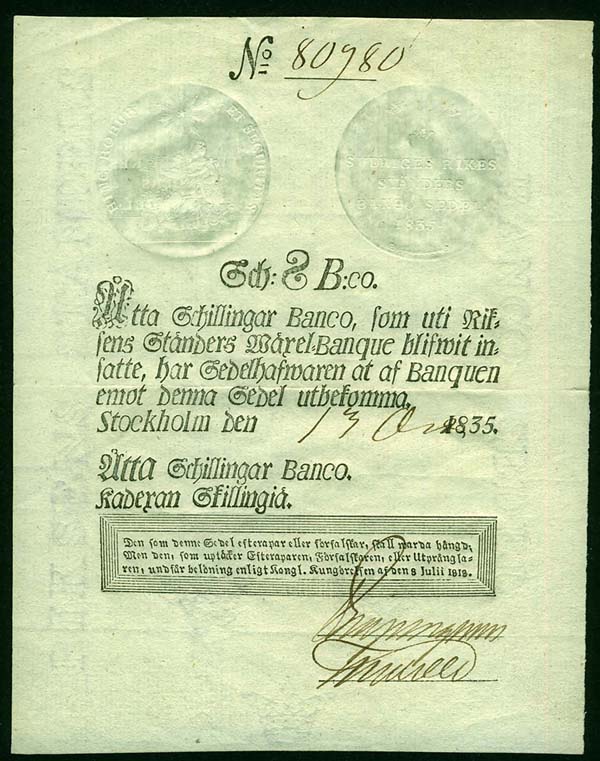 No 80980
HINC ROBUR ET SECURITAS
SVERIGES RIKES
STÄNDERS
BANK SEDEL
1835
Sch: 8 B:co.
Åtta Schillingar Banco, som uti Rik-
sens Ständers Wäxel-Banque blifwit in-
satte, har Sedelhafwaren at af Banquen
emot denna Sedel utbekomma.
Stockholm den 13 1835.
Åtta Schillingar Banco.
Kadexan Skillingiä.
Den som denne Sedel efterapar eller förfalskar, skall warda hängd;
Men den, som uptäcker Efteraparen, Förfalskaren, eller Utprångla-
ren, undfår belöning enligt Kongl. Kungörelsen af den 8 Julii 1818.